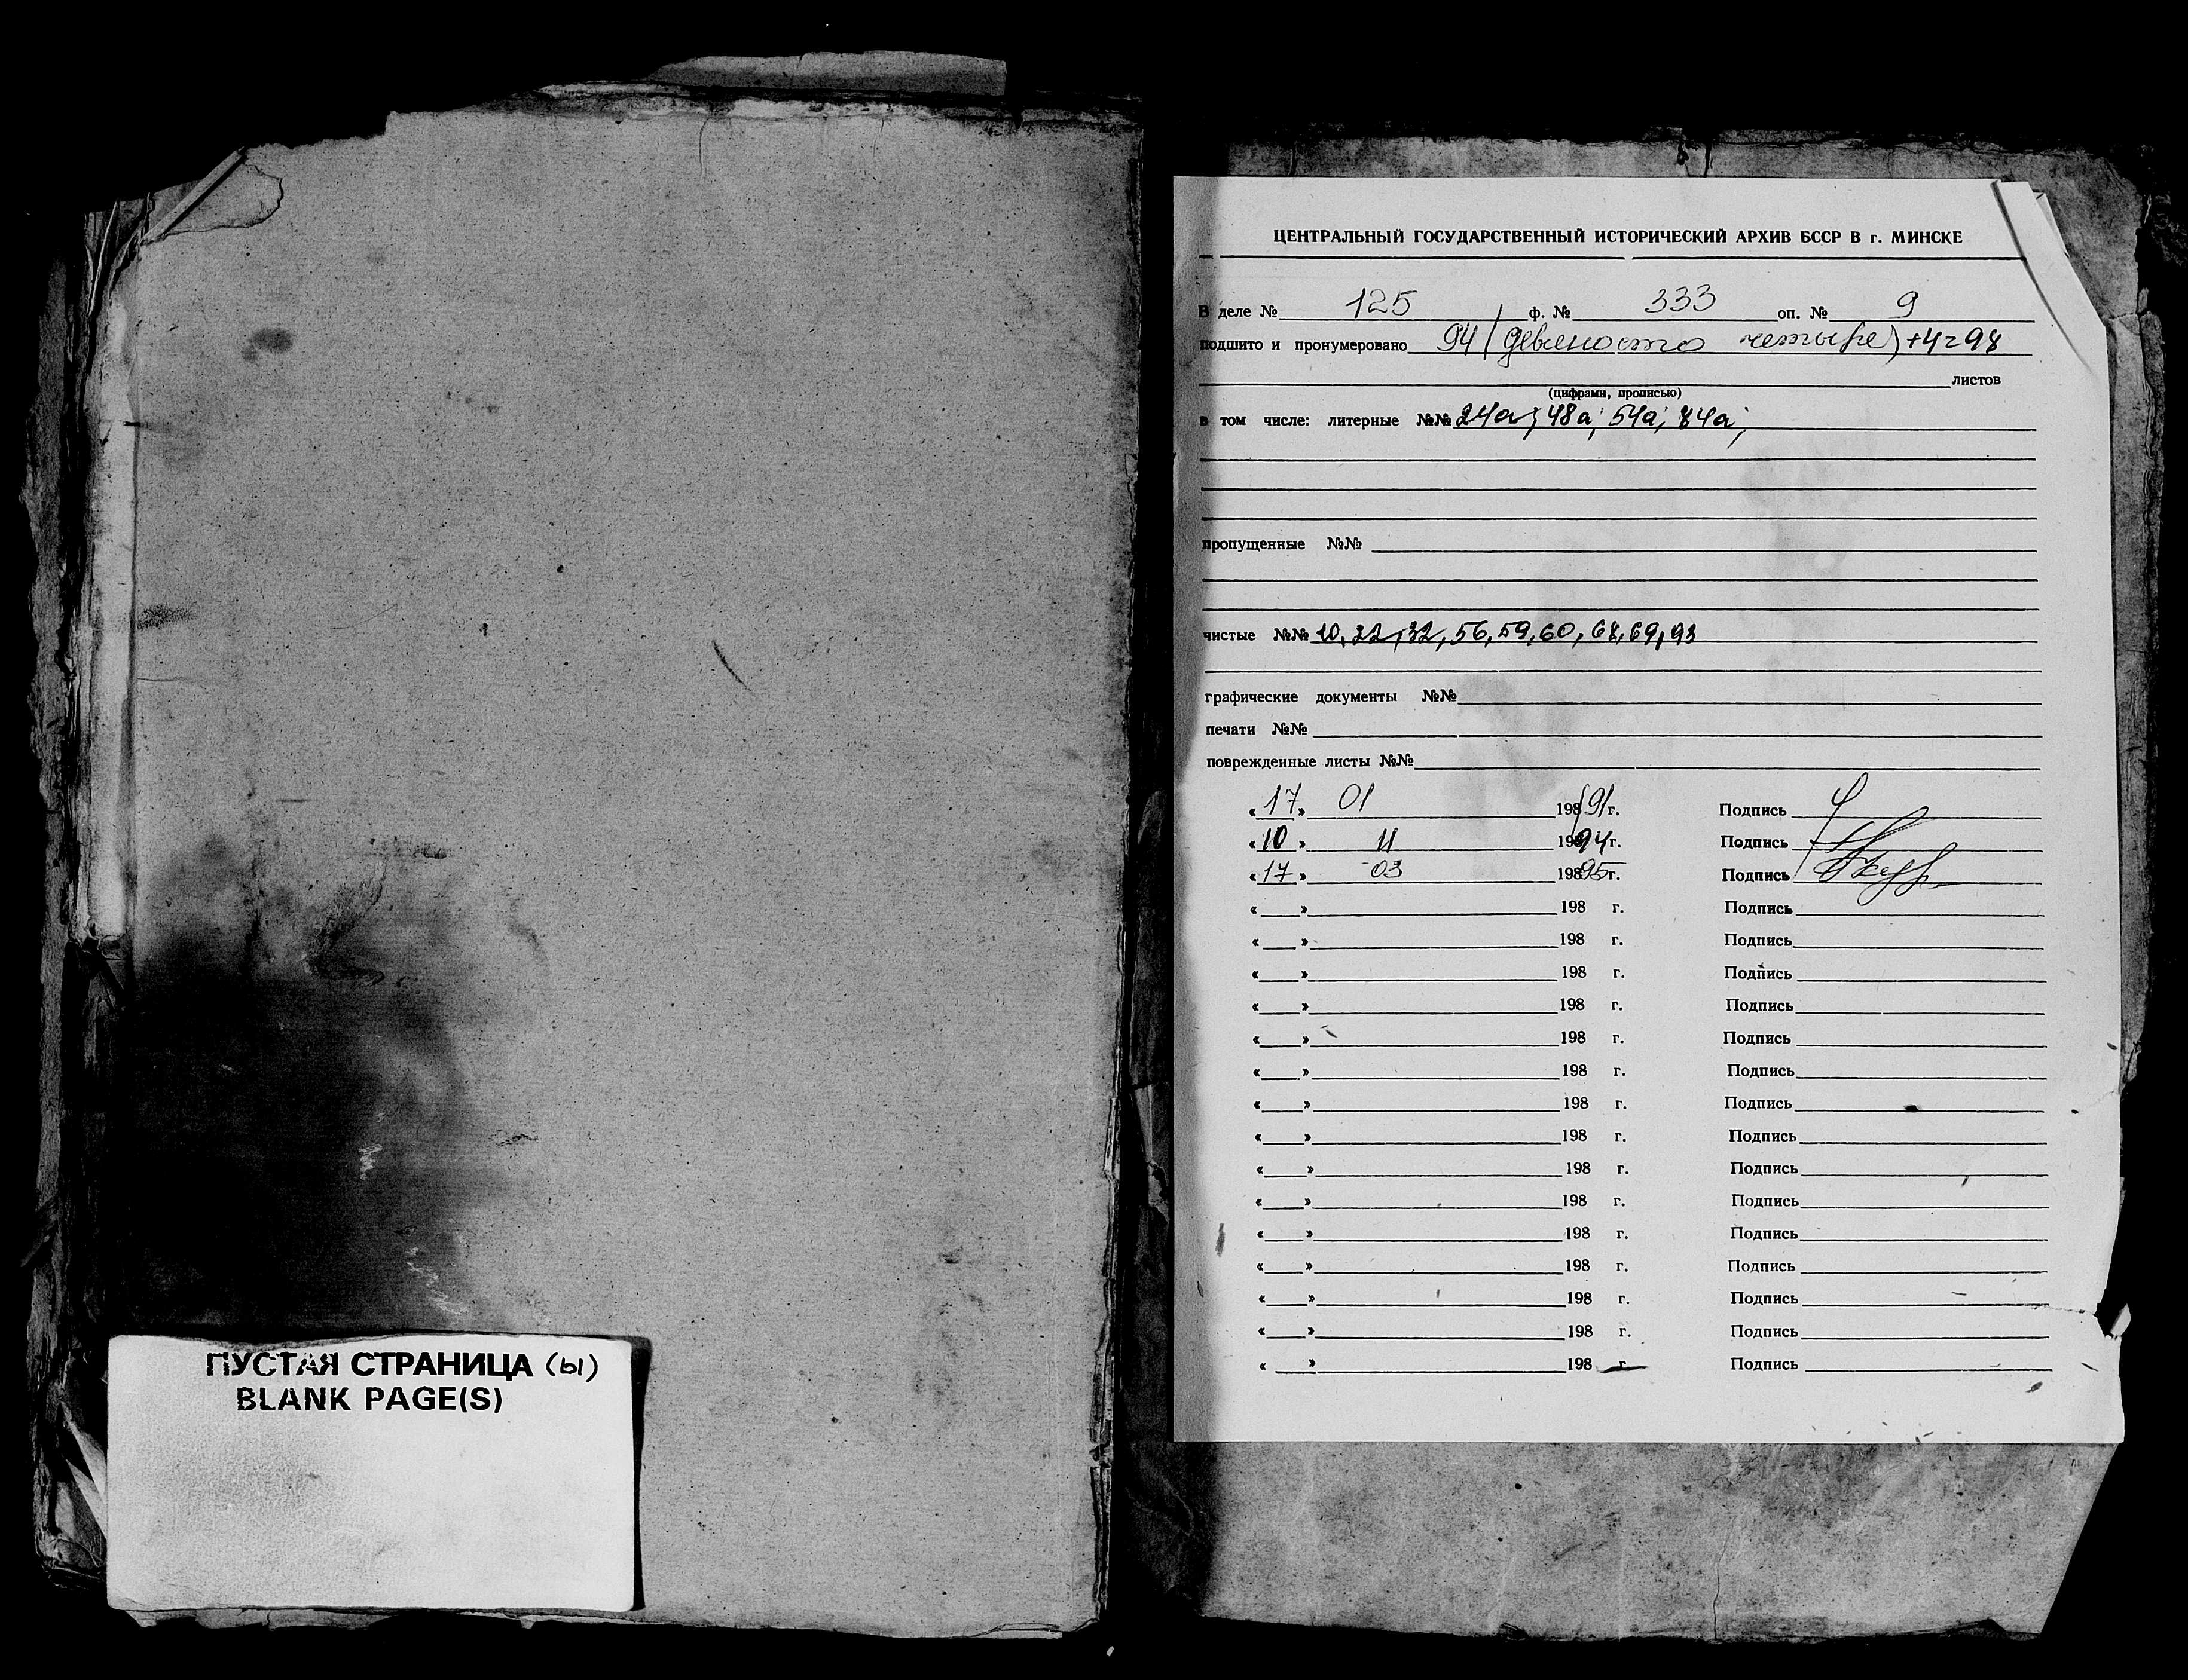 ПУСТАЯ СТРАНИЦА (ы)
BLANK PAGE(S)
ЦЕНТРАЛЬНЫЙ ГОСУДАРСТВЕННЫЙ ИСТОРИЧЕСКИЙ АРХИВ БССР В г. МИНСКЕ
В деле № 125 ф. № 333 оп. № 9
подшито и пронумеровано 94 (девяносто четыре) +4=98
листов
(цифрами, прописью)
в том числе: литерные №№ 24а; 48а; 54а; 84а;
пропущенные №№
чистые №№ 10, 22, 32, 56, 59, 60, 68, 69, 93
графические документы №№
печати №№
поврежденные листы №№
«17» 01 198 91 г. Подпись
«10» 11 198 94 г. Подпись
«17» 03 198 95 г. Подпись
« » 198 г. Подпись
« » 198 г. Подпись
« » 198 г. Подпись
« » 198 г. Подпись
« » 198 г. Подпись
« » 198 г. Подпись
« » 198 г. Подпись
« » 198 г. Подпись
« » 198 г. Подпись
« » 198 г. Подпись
« » 198 г. Подпись
« » 198 г. Подпись
« » 198 г. Подпись
« » 198 г. Подпись
« » 198 г. Подпись